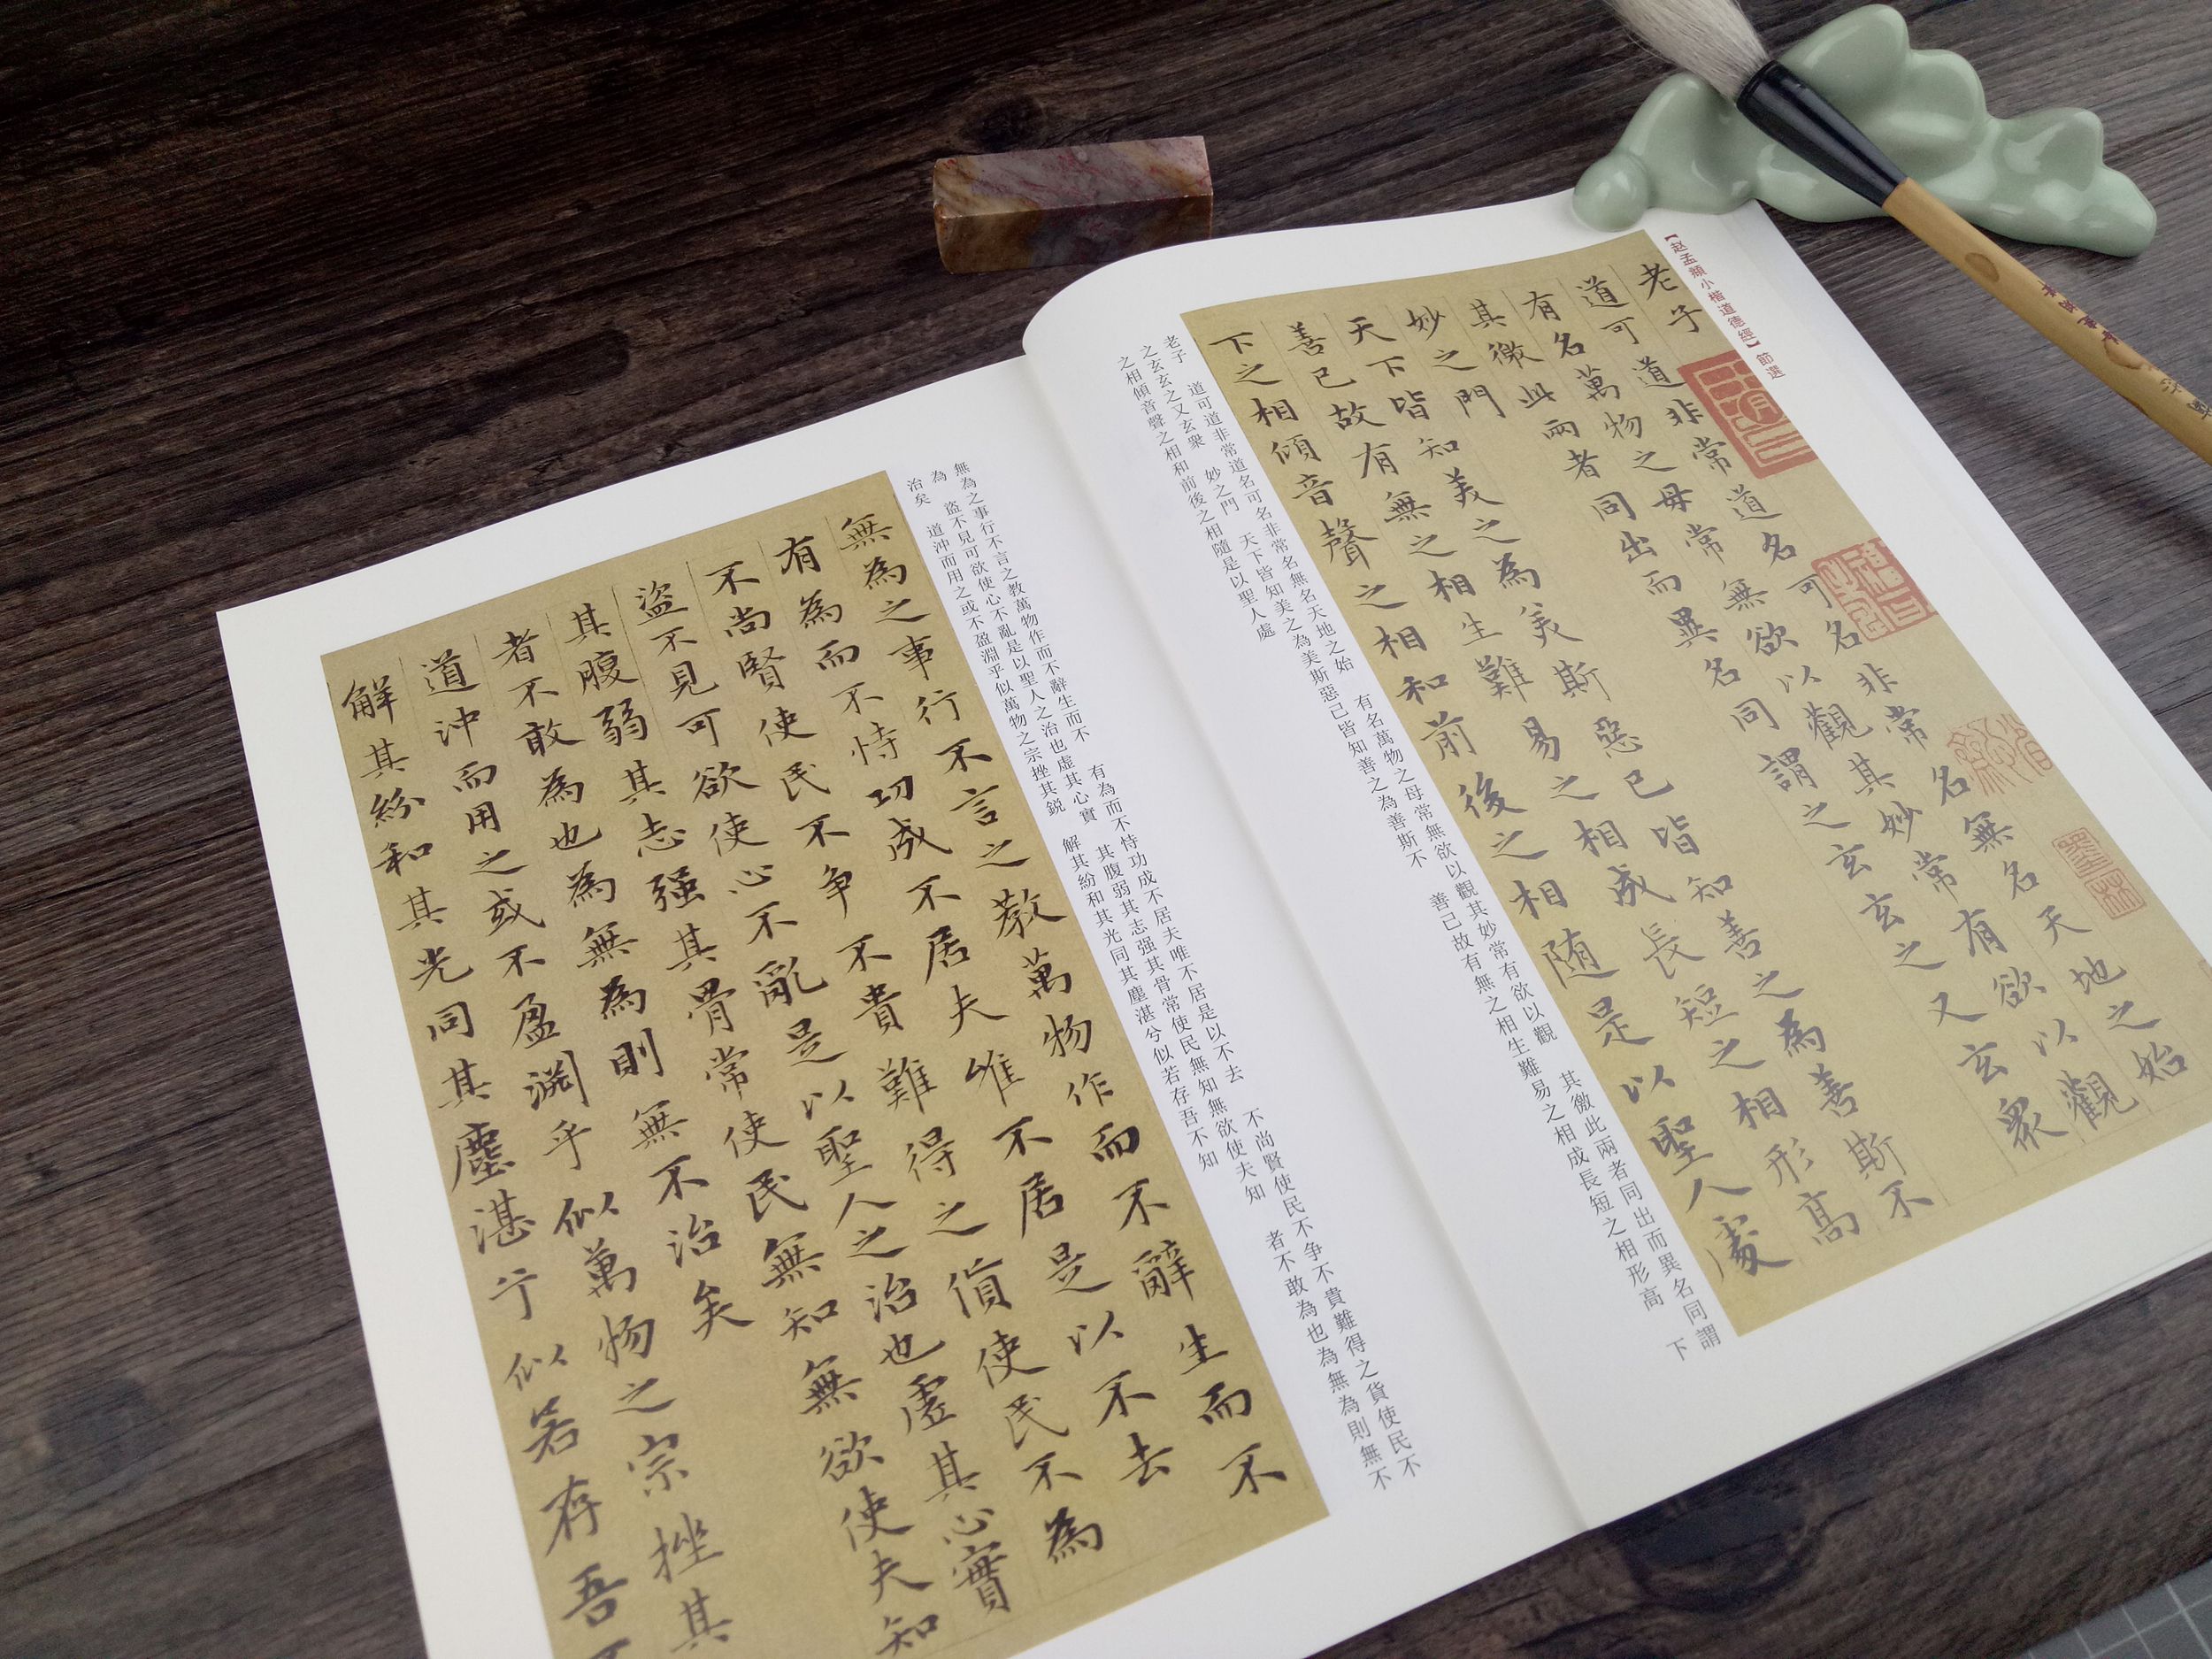 【赵孟頫小楷道德經】節選
老子
道可道非常道名可名非常名無名天地之始
有名萬物之母常無欲以觀其妙常有欲以觀
其徼此兩者同出而異名同謂之玄玄之又玄衆
妙之門
天下皆知美之為美斯惡已皆知善之為善斯不
善已故有無之相生難易之相成長短之相形高
下之相傾音聲之相和前後之相随是以聖人處
老子　道可道非常道名可名非常名無名天地之始　有名萬物之母常無欲以觀其妙常有欲以觀　其徼此兩者同出而異名同謂
之玄玄之又玄衆　妙之門　天下皆知美之為美斯惡己皆知善之為善斯不　善己故有無之相生難易之相成長短之相形高　下
之相傾音聲之相和前後之相隨是以聖人處
無為之事行不言之教萬物作而不辭生而不　有為而不恃功成不居夫唯不居是以不去　不尚賢使民不争不貴難得之貨使民不
為　盜不見可欲使心不亂是以聖人之治也虛其心實　其腹弱其志强其骨常使民無知無欲使夫知　者不敢為也為無為則無不
治矣　道沖而用之或不盈淵乎似萬物之宗挫其鋭　解其紛和其光同其塵湛兮似若存吾不知
無為之事行不言之教萬物作而不辭生而不
有為而不恃功成不居夫唯不居是以不去
不尚賢使民不争不貴難得之貨使民不為
盜不見可欲使心不亂是以聖人之治也虛其心實
其腹弱其志强其骨常使民無知無欲使夫知
者不敢為也為無為則無不治矣
道沖而用之或不盈淵乎似萬物之宗挫其
解其紛和其光同其塵湛兮似若存吾